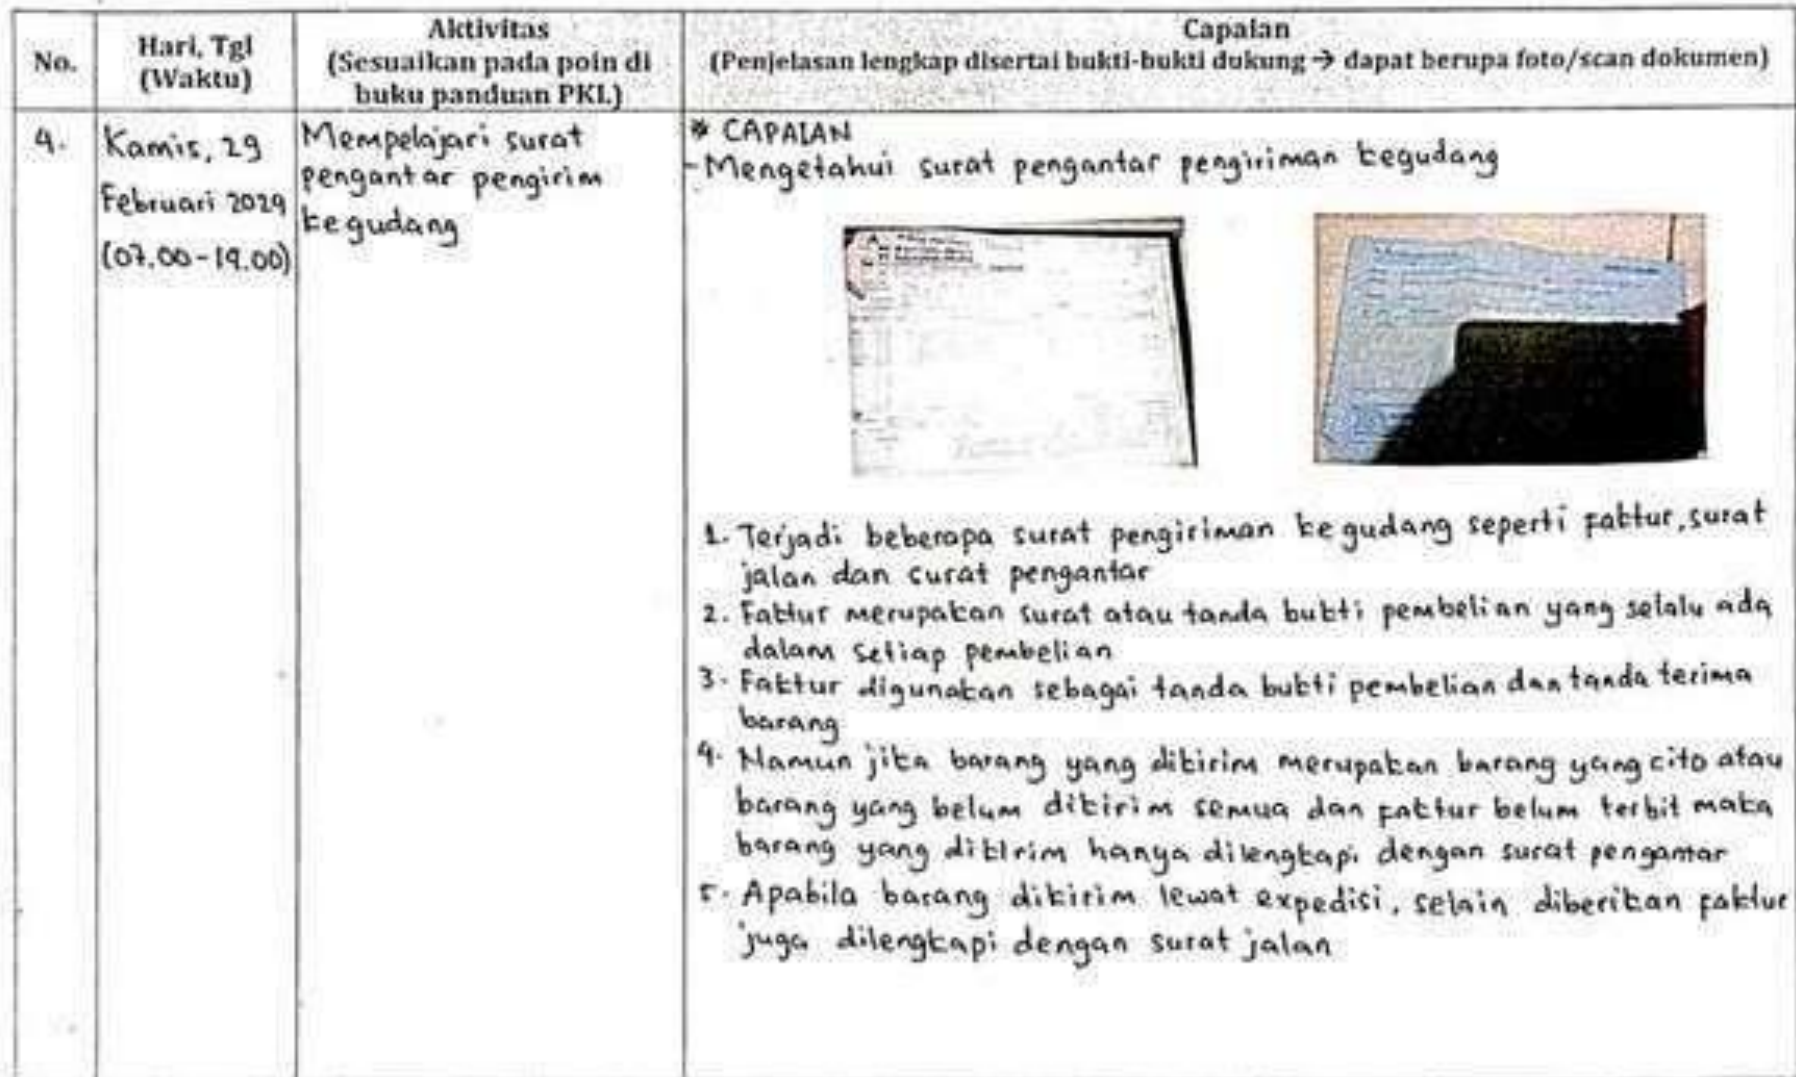 No.
Hari, Tgl
(Waktu)
Aktivitas
(Sesuaikan pada poin di
buku panduan PKL)
Capaian
(Penjelasan lengkap disertai bukti-bukti dukung → dapat berupa foto/scan dokumen)
4.
Kamis, 29
Februari 2024
(07.00-14.00)
Mempelajari surat
pengantar pengirim
kegudang
* CAPAIAN
- Mengetahui surat pengantar pengiriman kegudang
1. Terjadi beberapa surat pengiriman kegudang seperti faktur, surat
jalan dan surat pengantar
2. Faktur merupakan surat atau tanda bukti pembelian yang selalu ada
dalam setiap pembelian
3. Faktur digunakan sebagai tanda bukti pembelian dan tanda terima
barang
4. Namun jika barang yang dikirim merupakan barang yang cito atau
barang yang belum dikirim semua dan faktur belum terbit maka
barang yang dikirim hanya dilengkapi dengan surat pengantar
5. Apabila barang dikirim lewat expedisi, selain diberikan faktur
juga dilengkapi dengan surat jalan